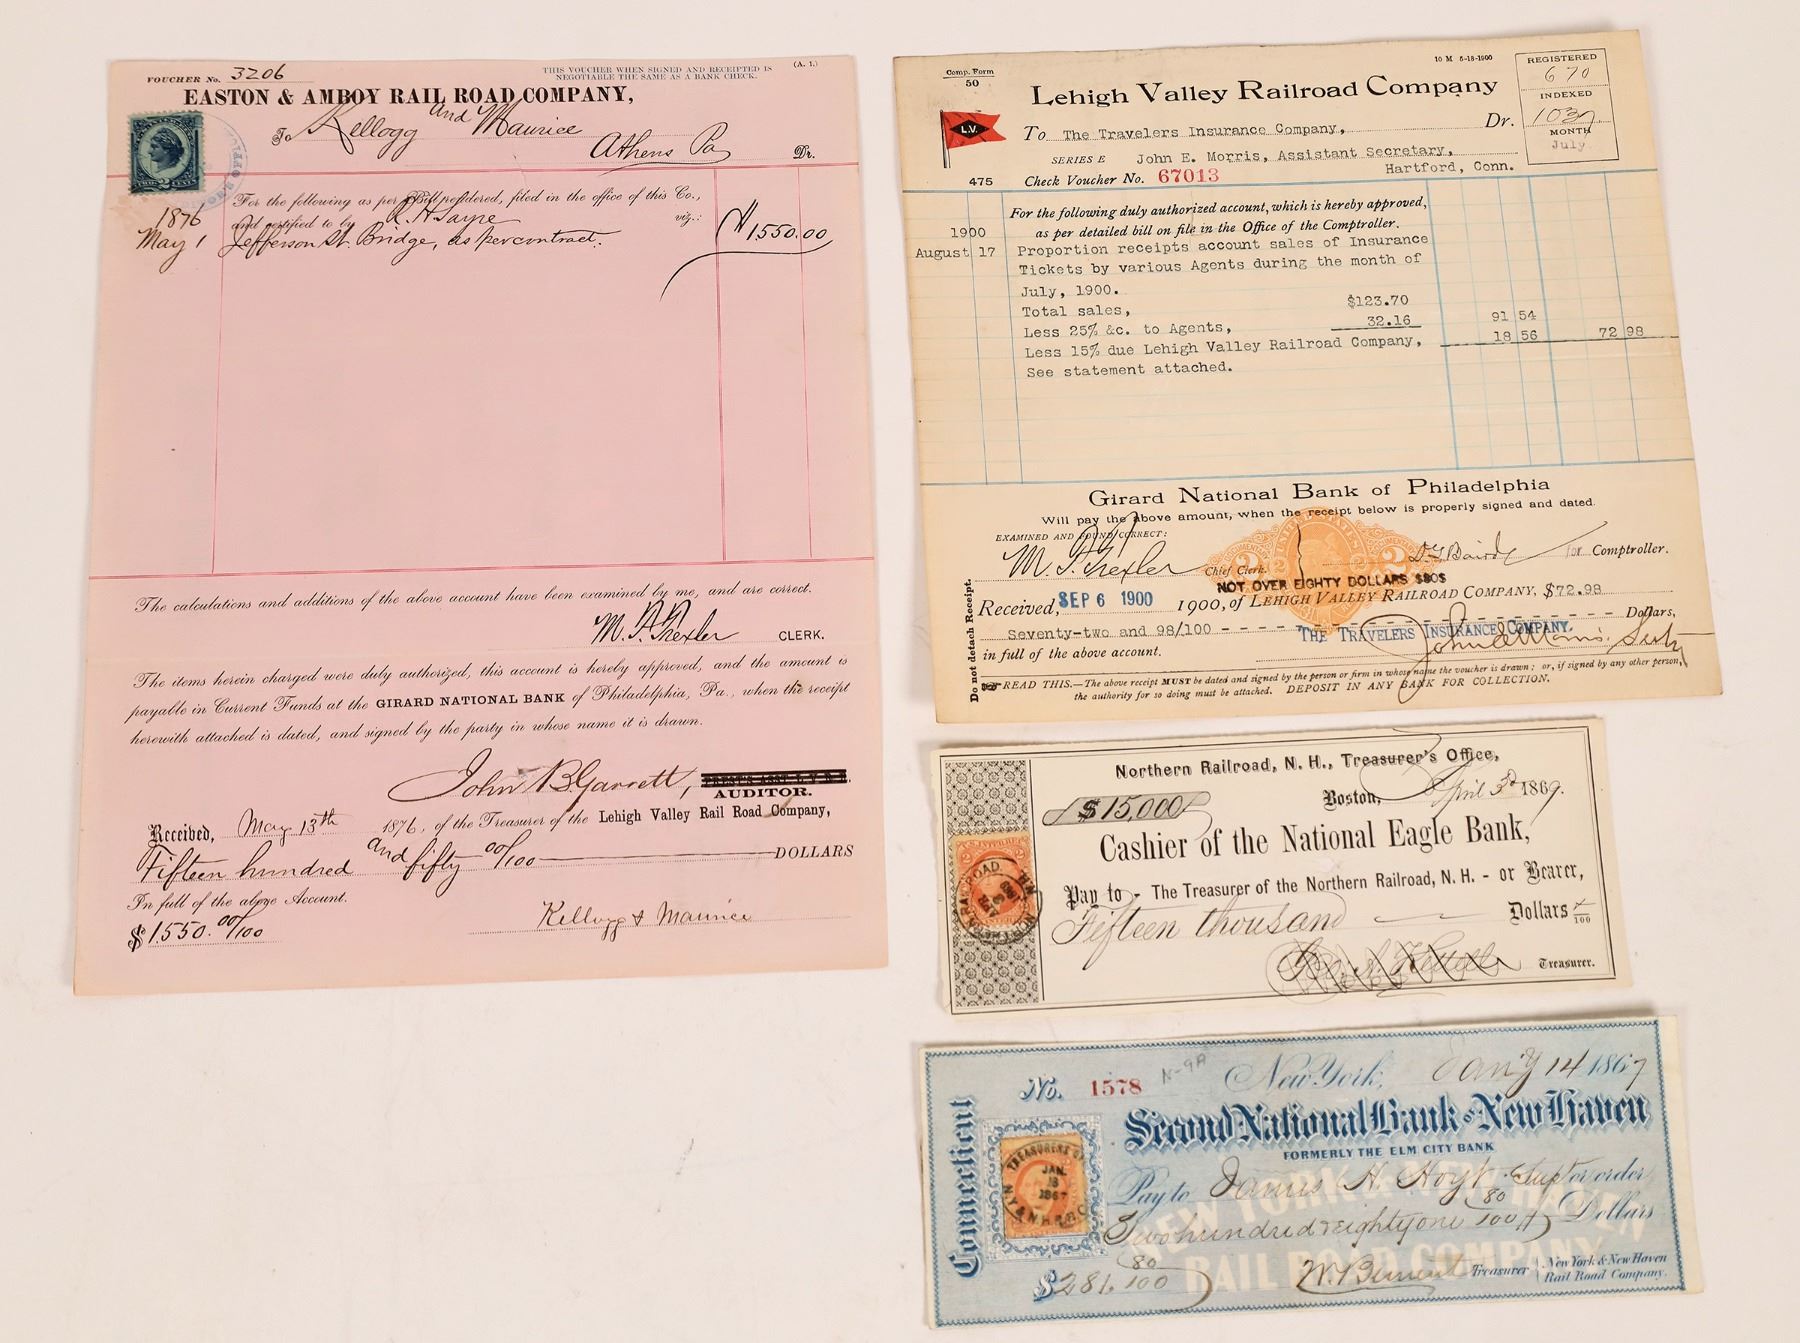 VOUCHER No. 3206
THIS VOUCHER WHEN SIGNED AND RECEIPTED IS
NEGOTIABLE THE SAME AS A BANK CHECK.
(A. 1.)
EASTON & AMBOY RAIL ROAD COMPANY,
To Kellogg and Maurice
Athens Pa Dr.
For the following as per Bill rendered, filed in the office of this Co.,
and certified to by R. H. Sayre viz.:
1876
May 1 Jefferson St. Bridge, as per contract. $1,550.00
The calculations and additions of the above account have been examined by me, and are correct.
CLERK.
The items herein charged were duly authorized, this account is hereby approved, and the amount is
payable in Current Funds at the GIRARD NATIONAL BANK of Philadelphia, Pa., when the receipt
herewith attached is dated, and signed by the party in whose name it is drawn.
John B Garrett,
AUDITOR.
Received, May 13th 1876, of the Treasurer of the Lehigh Valley Rail Road Company,
Fifteen hundred and fifty 00/100 DOLLARS
In full of the above Account.
$1550.00/100
Kellogg & Maurice
Comp. Form
50
10 M 5-18-1900
REGISTERED
670
INDEXED
MONTH
July
Lehigh Valley Railroad Company
L.V.
To The Travelers Insurance Company, Dr.
SERIES E John E. Morris, Assistant Secretary,
475 Check Voucher No. 67013 Hartford, Conn.
For the following duly authorized account, which is hereby approved,
1900 as per detailed bill on file in the Office of the Comptroller.
August 17 Proportion receipts account sales of Insurance
Tickets by various Agents during the month of
July, 1900.
Total sales, $123.70
Less 25% &c. to Agents, 32.16 91 54
Less 15% due Lehigh Valley Railroad Company, 18 56 72 98
See statement attached.
Girard National Bank of Philadelphia
Will pay the above amount, when the receipt below is properly signed and dated.
EXAMINED AND FOUND CORRECT:
Chief Clerk. for Comptroller.
NOT OVER EIGHTY DOLLARS $80$
Do not detach Receipt.
Received, SEP 6 1900 1900, of LEHIGH VALLEY RAILROAD COMPANY, $72.98
Seventy-two and 98/100 - - - - - - - - - - - - - - - - Dollars,
THE TRAVELERS INSURANCE COMPANY.
in full of the above account. John E Morris.
READ THIS.—The above receipt MUST be dated and signed by the person or firm in whose name the voucher is drawn; or, if signed by any other person,
the authority for so doing must be attached. DEPOSIT IN ANY BANK FOR COLLECTION.
Northern Railroad, N. H., Treasurer's Office,
$15,000 Boston, April 3d 1869.
Cashier of the National Eagle Bank,
Pay to - The Treasurer of the Northern Railroad, N. H. - or Bearer,
Fifteen thousand Dollars /100
Treasurer.
No. 1578 N-9A New York, Jan'y 14 1867
Second National Bank of New Haven
FORMERLY THE ELM CITY BANK
Connecticut
TREASURERS OF
JAN.
18
1867
Pay to James H. Hoyt Supt or order
Two hundred & eighty one 80/100 Dollars
NEW YORK & NEW HAVEN
RAIL ROAD COMPANY
$281.80/100 W. Bement Treasurer New York & New Haven
Rail Road Company.